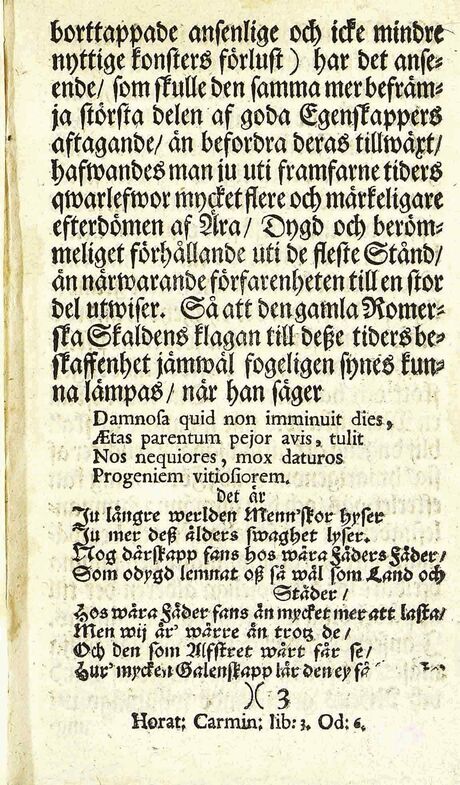 borttappade ansenlige och icke mindre
nyttige konsters förlust ) har det anse-
ende / som skulle den samma mer befräm-
ja största delen af goda Egenskappers
aftagande / än befordra deras tillwäxt /
hafwandes man ju uti framfarne tiders
qwarlefwor mycket flere och märkeligare
efterdömen af Ära / Dygd och beröm-
meliget förhållande uti de fleste Stånd /
än närwarande förfarenheten till en stor
del utwiser. Så att den gamla Romer-
ska Skaldens klagan till deße tiders be-
skaffenhet jämwäl fogeligen synes kun-
na lämpas / när han säger
Damnosa quid non imminuit dies,
Ætas parentum pejor avis, tulit
Nos nequiores, mox daturos
Progeniem vitiosiorem.
det är
Ju längre werlden Menn'skor hyser
Ju mer deß ålders swaghet lyser.
Nog dårskapp fans hos wåra Fäders Fäder /
Som odygd lemnat oß så wäl som Land och
Städer /
Hos wåra Fäder fans än mycket mer att lasta /
Men wij är' wärre än trotz de /
Och den som Alfstret wårt får se /
Hur' mycken Galenskapp lär den ey få
)( 3
Horat: Carmin: lib: 3. Od: 6.